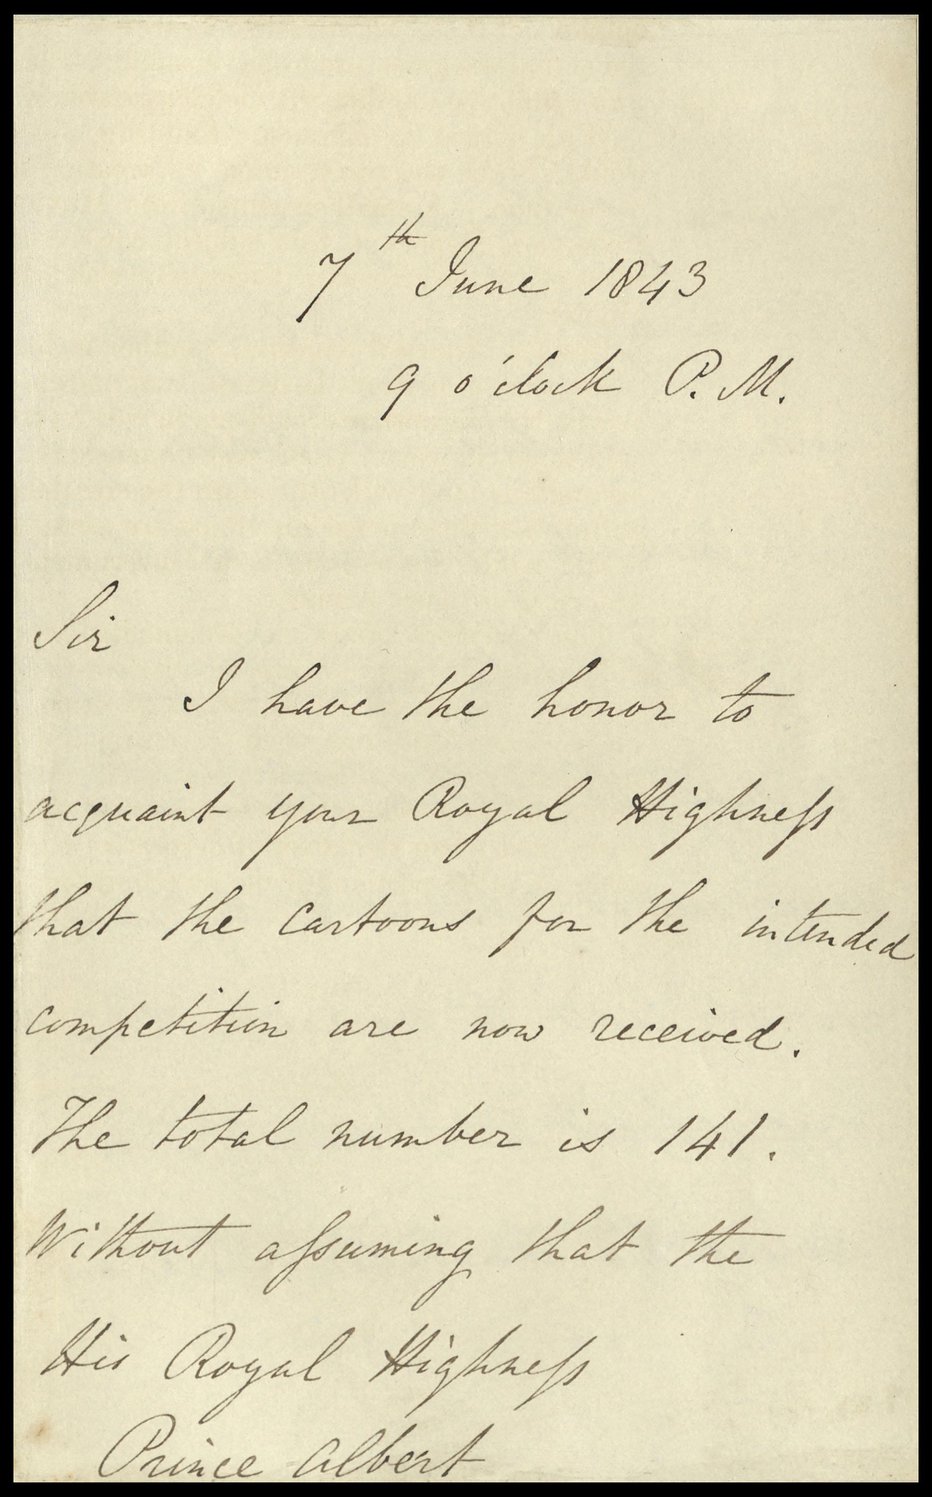 7th June 1843
9 o'clock P.M.
Sir
I have the honor to
acquaint your Royal Highneſs
that the cartoons for the intended
competition are now received.
The total number is 141.
Without aſsuming that the
His Royal Highneſs
Prince Albert